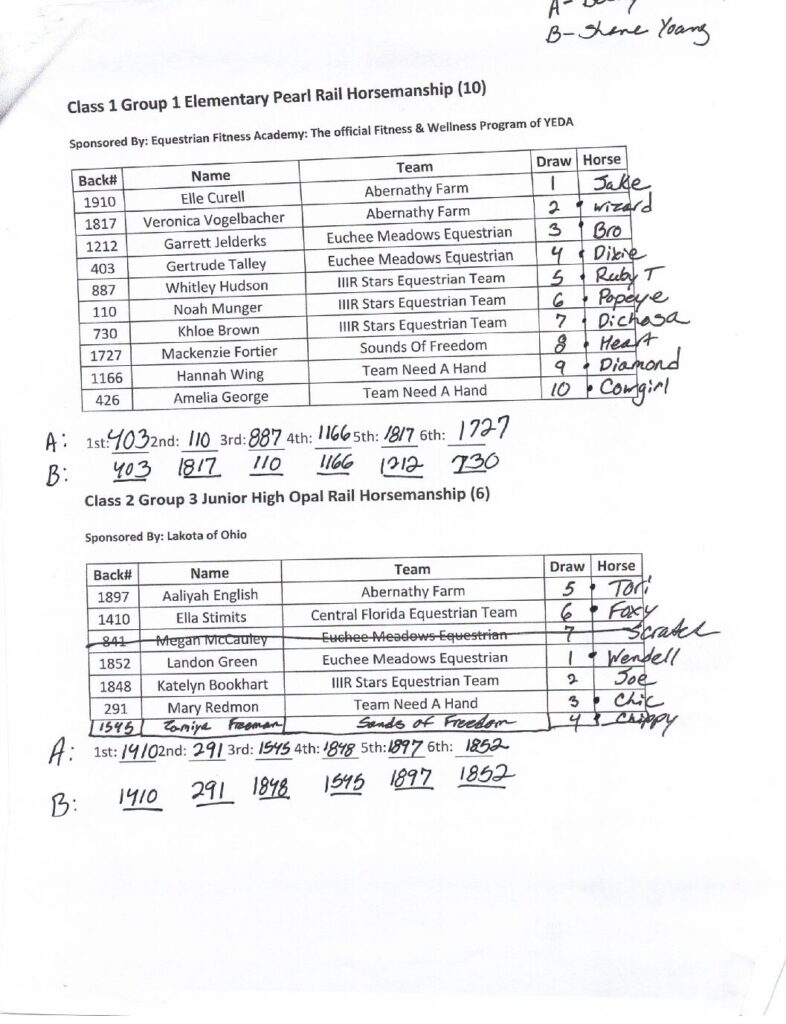 A-
B- Shene Yoang
Class 1 Group 1 Elementary Pearl Rail Horsemanship (10)
Sponsored By: Equestrian Fitness Academy: The official Fitness & Wellness Program of YEDA
Back# Name Team Draw Horse
1910 Elle Curell Abernathy Farm 1 Jake
1817 Veronica Vogelbacher Abernathy Farm 2 Wizard
1212 Garrett Jelderks Euchee Meadows Equestrian 3 Bro
403 Gertrude Talley Euchee Meadows Equestrian 4 Dixie
887 Whitley Hudson IIIR Stars Equestrian Team 5 Ruby T
110 Noah Munger IIIR Stars Equestrian Team 6 Popeye
730 Khloe Brown IIIR Stars Equestrian Team 7 Dichosa
1727 Mackenzie Fortier Sounds Of Freedom 8 Heart
1166 Hannah Wing Team Need A Hand 9 Diamond
426 Amelia George Team Need A Hand 10 Cowgirl
A: 1st: 403 2nd: 110 3rd: 887 4th: 1166 5th: 1817 6th: 1727
B: 403 1817 110 1166 1212 730
Class 2 Group 3 Junior High Opal Rail Horsemanship (6)
Sponsored By: Lakota of Ohio
Back# Name Team Draw Horse
1897 Aaliyah English Abernathy Farm 5 Tori
1410 Ella Stimits Central Florida Equestrian Team 6 Foxy
841 Megan McCauley Euchee Meadows Equestrian 7 Scratch
1852 Landon Green Euchee Meadows Equestrian 1 Wendell
1848 Katelyn Bookhart IIIR Stars Equestrian Team 2 Joe
291 Mary Redmon Team Need A Hand 3 Chic
1545 Zamiya Freeman Sounds of Freedom 4 Chippy
A: 1st: 1410 2nd: 291 3rd: 1545 4th: 1848 5th: 1897 6th: 1852
B: 1410 291 1848 1545 1897 1852